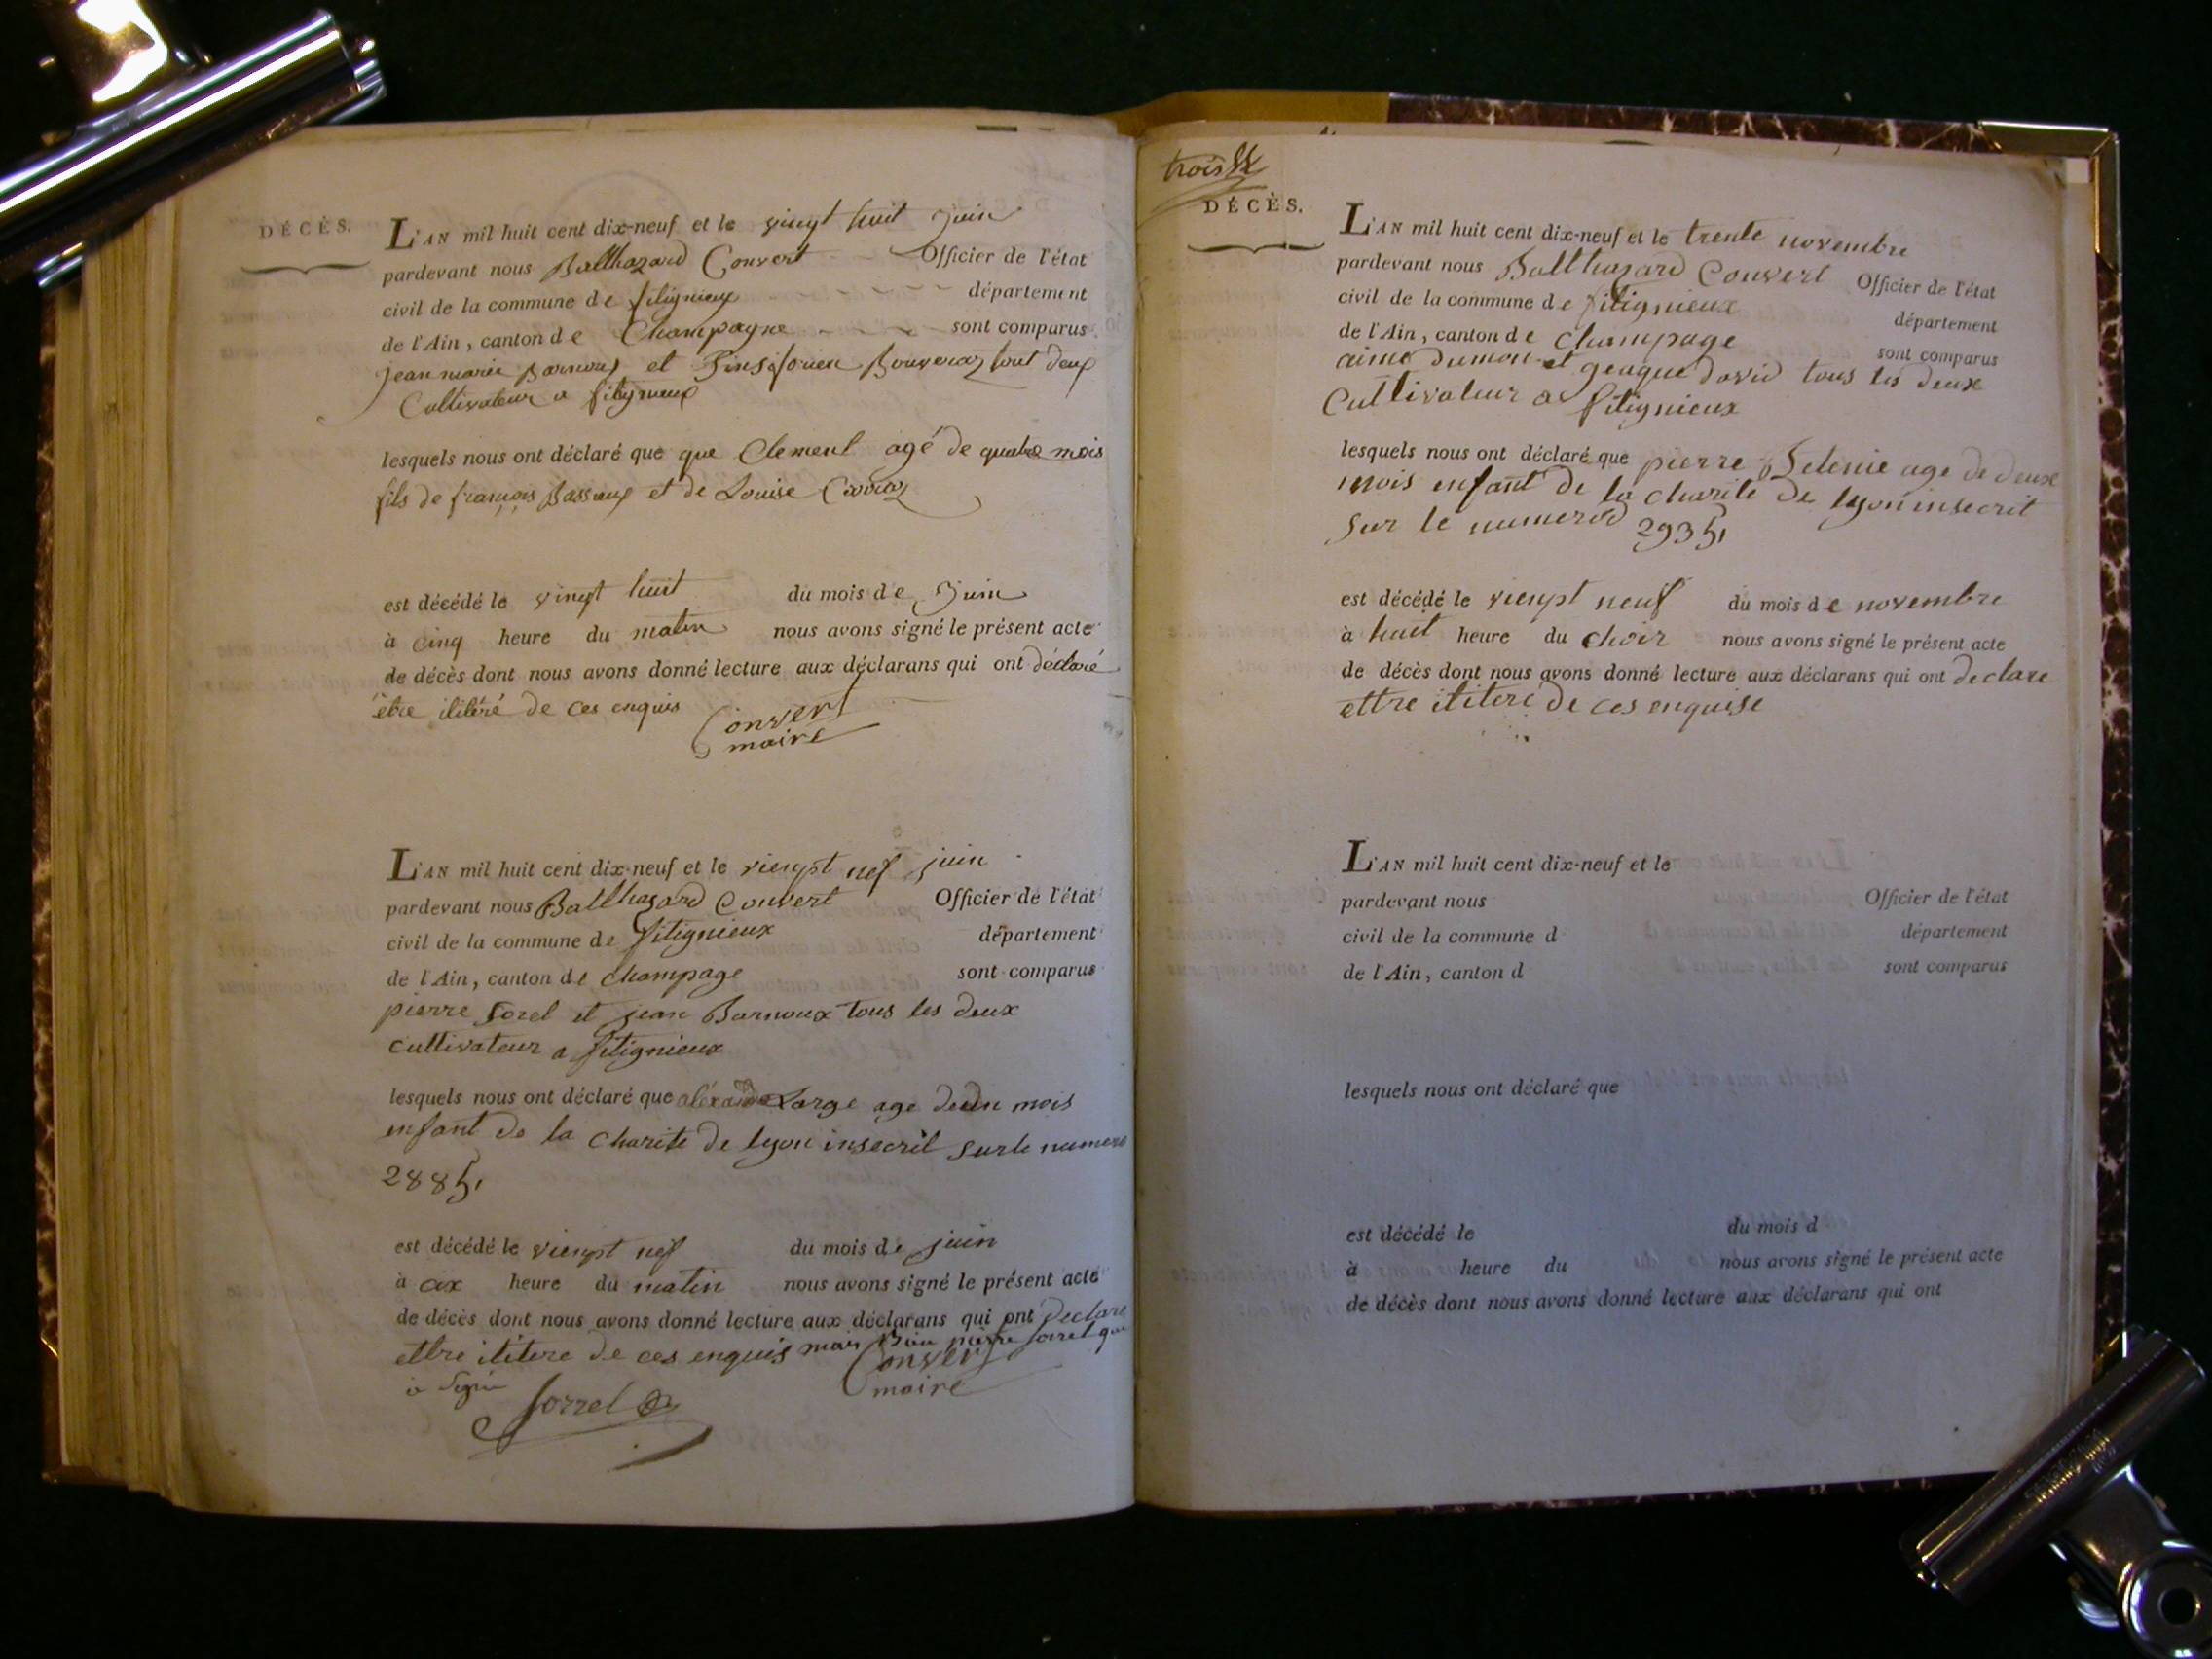 DÉCÈS.
L'AN mil huit cent dix-neuf et le vingt huit juin
pardevant nous Balthazard Convert Officier de l'état
civil de la commune de fitignieux département
de l'Ain, canton de Champagne sont comparus
jean marie Barnoux et Bouveraz tout deux
Cultivateur a fitignieux
lesquels nous ont déclaré que que Clement agé de quatre mois
fils de françois Basseux et de Louise
est décédé le vingt huit du mois de Juin
à cinq heure du matin nous avons signé le présent acte
de décès dont nous avons donné lecture aux déclarans qui ont déclaré
être ilitéré de ces enquis
Convert
maire
L'AN mil huit cent dix-neuf et le viengt nef juin
pardevant nous Balthazard Convert Officier de l'état
civil de la commune de fitignieux département
de l'Ain, canton de Champage sont comparus
pierre Sorel et jean Barnoux tous les deux
cultivateur a fitignieux
lesquels nous ont déclaré que Large age deun mois
enfant de la charite de lyon insecrit sur le numero
2885,
est décédé le viengt nef du mois de juin
à cix heure du matin nous avons signé le présent acte
de décès dont nous avons donné lecture aux déclarans qui ont declare
ettre ilitere de ces enquis mais Bien pierre sorrel qui
a signé
Convert
maire
Sorrel
trois
DÉCÈS.
L'AN mil huit cent dix-neuf et le trente novembre
pardevant nous Balthazard Convert Officier de l'état
civil de la commune de fitignieux département
de l'Ain, canton de champage sont comparus
aime Dumon et geaque David tous les deux
Cultivateur a fitignieux
lesquels nous ont déclaré que pierre age de deux
mois enfant de la charite de lyon insecrit
sur le numerod 2935,
est décédé le viengt neuf du mois de novembre
à huit heure du choir nous avons signé le présent acte
de décès dont nous avons donné lecture aux déclarans qui ont declare
ettre ilitere de ces enquise
L'AN mil huit cent dix-neuf et le
pardevant nous Officier de l'état
civil de la commune d département
de l'Ain, canton d sont comparus
lesquels nous ont déclaré que
est décédé le du mois d
à heure du nous avons signé le présent acte
de décès dont nous avons donné lecture aux déclarans qui ont